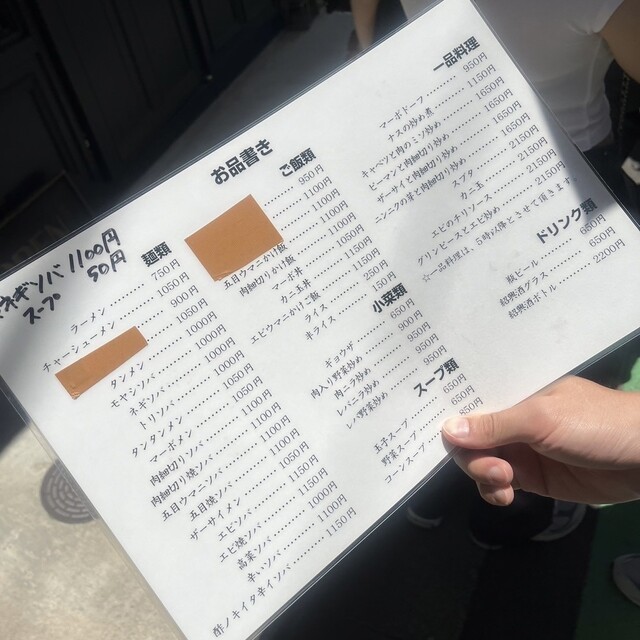 ネギソバ 1100円
スープ 50円
お品書き
麺類
ラーメン………750円
チャーシューメン………1050円
………900円
タンメン………1050円
モヤシソバ………1000円
ネギソバ………1000円
トリソバ………1000円
タンタンメン………1000円
マーボメン………1050円
肉細切りソバ………1100円
肉細切り焼ソバ………1100円
五目ウマニソバ………1100円
五目焼ソバ………1100円
ザーサイメン………1050円
エビソバ………1150円
エビ焼ソバ………1150円
高菜ソバ………1000円
辛いソバ………1100円
酢ノキイタ辛イソバ………1150円
ご飯類
………950円
1100円
1100円
五目ウマニかけ飯………1100円
肉細切りかけ飯………1100円
マーボ丼………1050円
カニ玉丼………1150円
エビウマニーかけご飯………1150円
ライス………250円
半ライス………150円
小菜類
ギョウザ………650円
肉入り野菜炒め………900円
肉ニラ炒め………950円
レバニラ炒め………950円
レバ野菜炒め………950円
スープ類
玉子スープ………650円
野菜スープ………650円
コーンスープ………850円
一品料理
マーボドーフ………950円
ナスの炒め煮………1150円
キャベツと肉のミソ炒め………1650円
ピーマンと肉細切り炒め………1650円
ザーサイと肉細切り炒め………1650円
ニンニクの芽と肉細切り炒め………1650円
スブタ………1650円
カニ玉………2150円
エビのチリソース………2150円
グリンピースとエビ炒め………2150円
☆一品料理は、5時以降とさせて頂きます。
ドリンク類
瓶ビール………650円
紹興酒グラス………650円
紹興酒ボトル………2200円